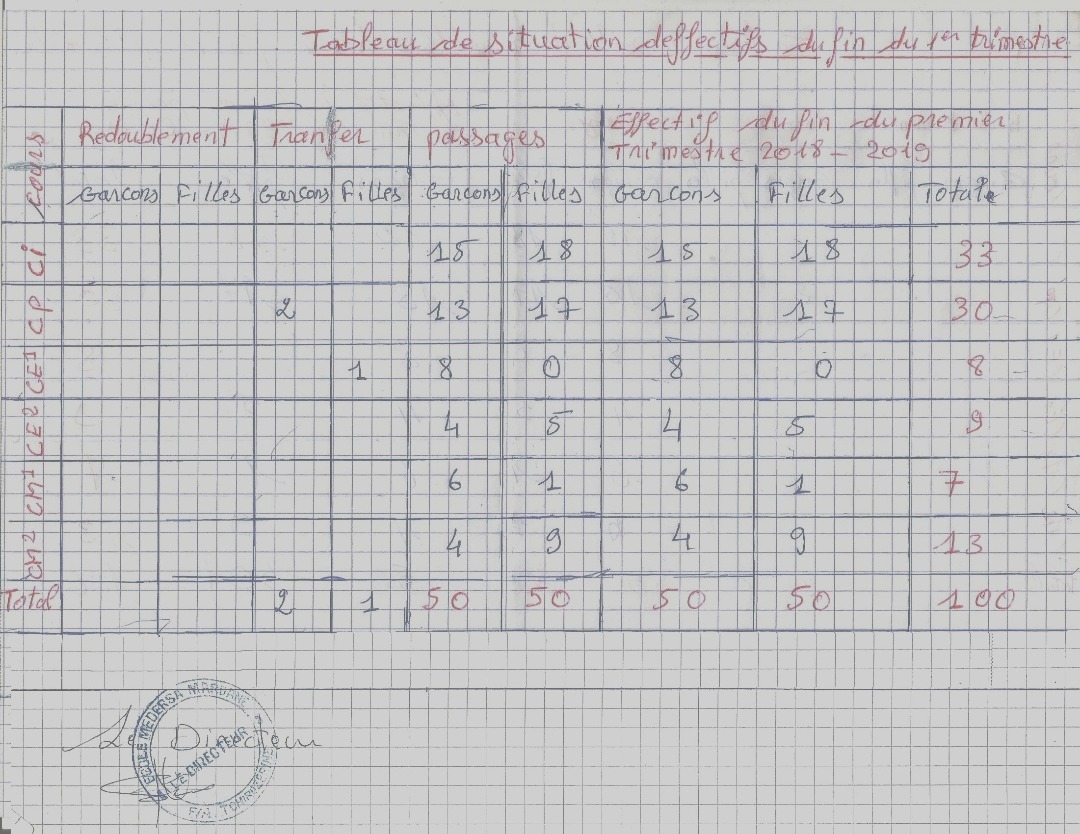 Tableau de situation deffectifs du fin du 1er trimestre
Cours Redoublement Tranfer passages Effectif du fin du premier
Trimestre 2018 - 2019
Garcons Filles Garcons Filles Garcons Filles Garcons Filles Totale
Ci 15 18 15 18 33
CP 2 13 17 13 17 30
CE1 1 8 0 8 0 8
CE2 4 5 4 5 9
CM1 6 1 6 1 7
CM2 4 9 4 9 13
Total 2 1 50 50 50 50 100
Le Directeur
ECOLE MEDERSA MARDANE
LE DIRECTEUR